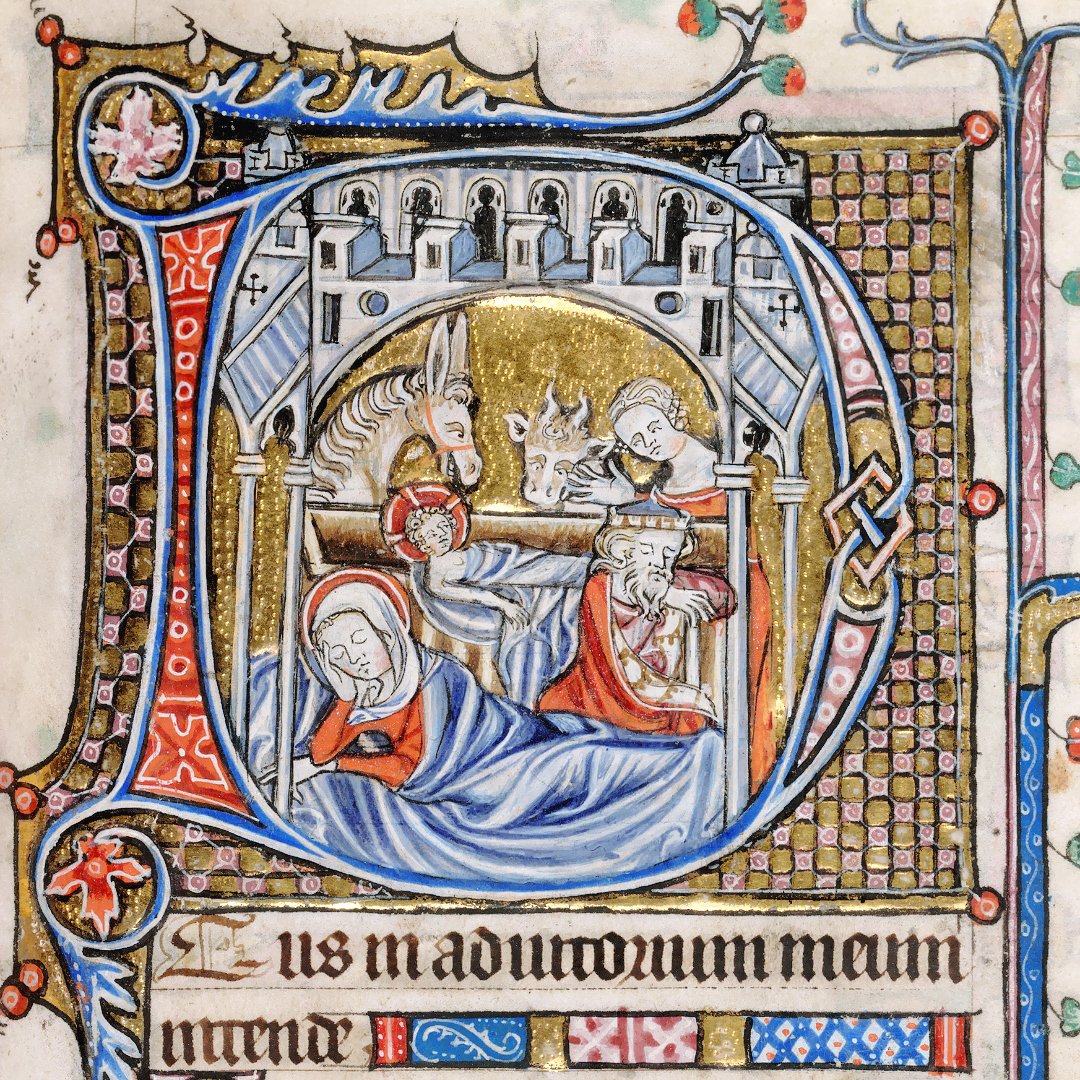 Deus in adiutorium meum
intende